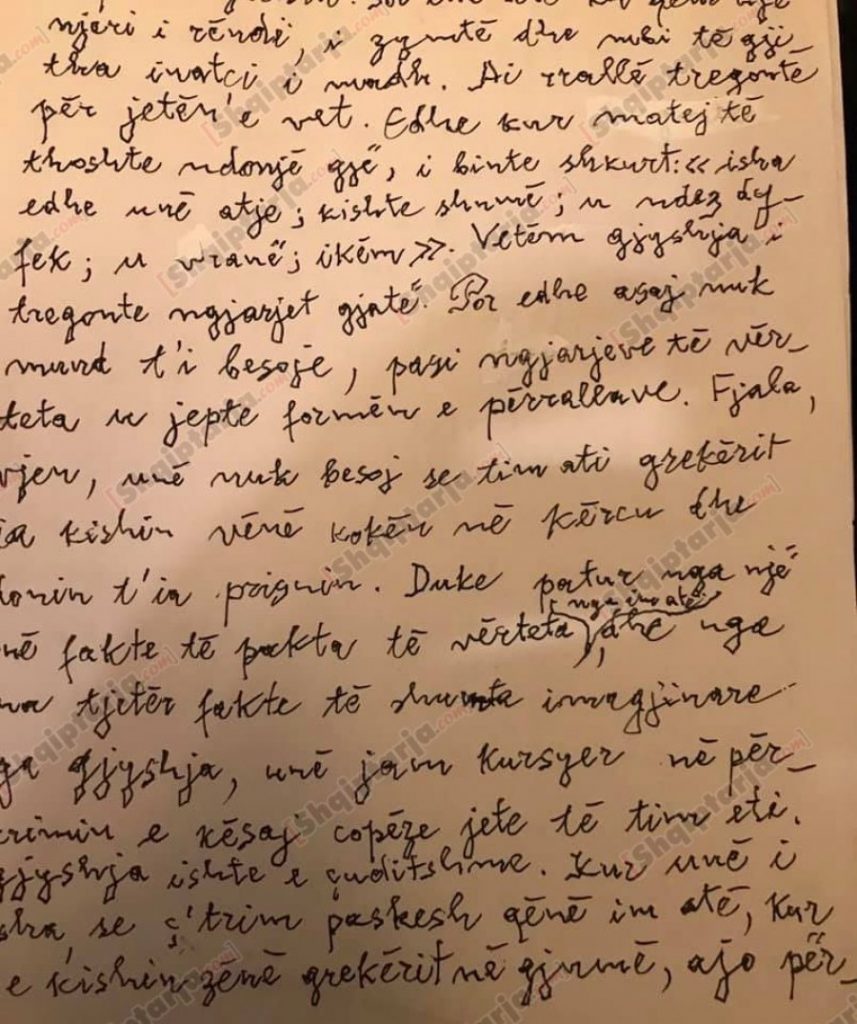 njeri i rëndë, i zymtë dhe mbi të gji
tha inatçi i madh. Ai rrallë tregontë
për jetën e vet. Edhe kur matej të
thoshte ndonjë gjë, i binte shkurt: « isha
edhe unë atje; kishte shumë; u ndez dy-
fek; u vranë; ikëm ». Vetëm gjyshja i
tregonte ngjarjet gjatë. Por edhe asaj nuk
mund t'i besoje, pasi ngjarjeve të vër-
teta u jepte formën e përrallave. Fjala,
vjen, unë nuk besoj se tim ati grekërit
ia kishin vënë kokën në kërcu dhe
donin t'ia prisnin. Duke patur nga një
nga im atë
në fakte të pakta të vërteta, dhe nga
na tjetër fakte të shumta imagjinare
ga gjyshja, unë jam kursyer në për-
krimin e kësaj copëze jete të tim eti.
gjyshja ishte e çuditshme. Kur unë i
sha, se ç'trim paskesh qënë im atë, kur
e kishin zënë grekërit në gjumë, ajo për-
[Shqiptarja.com]